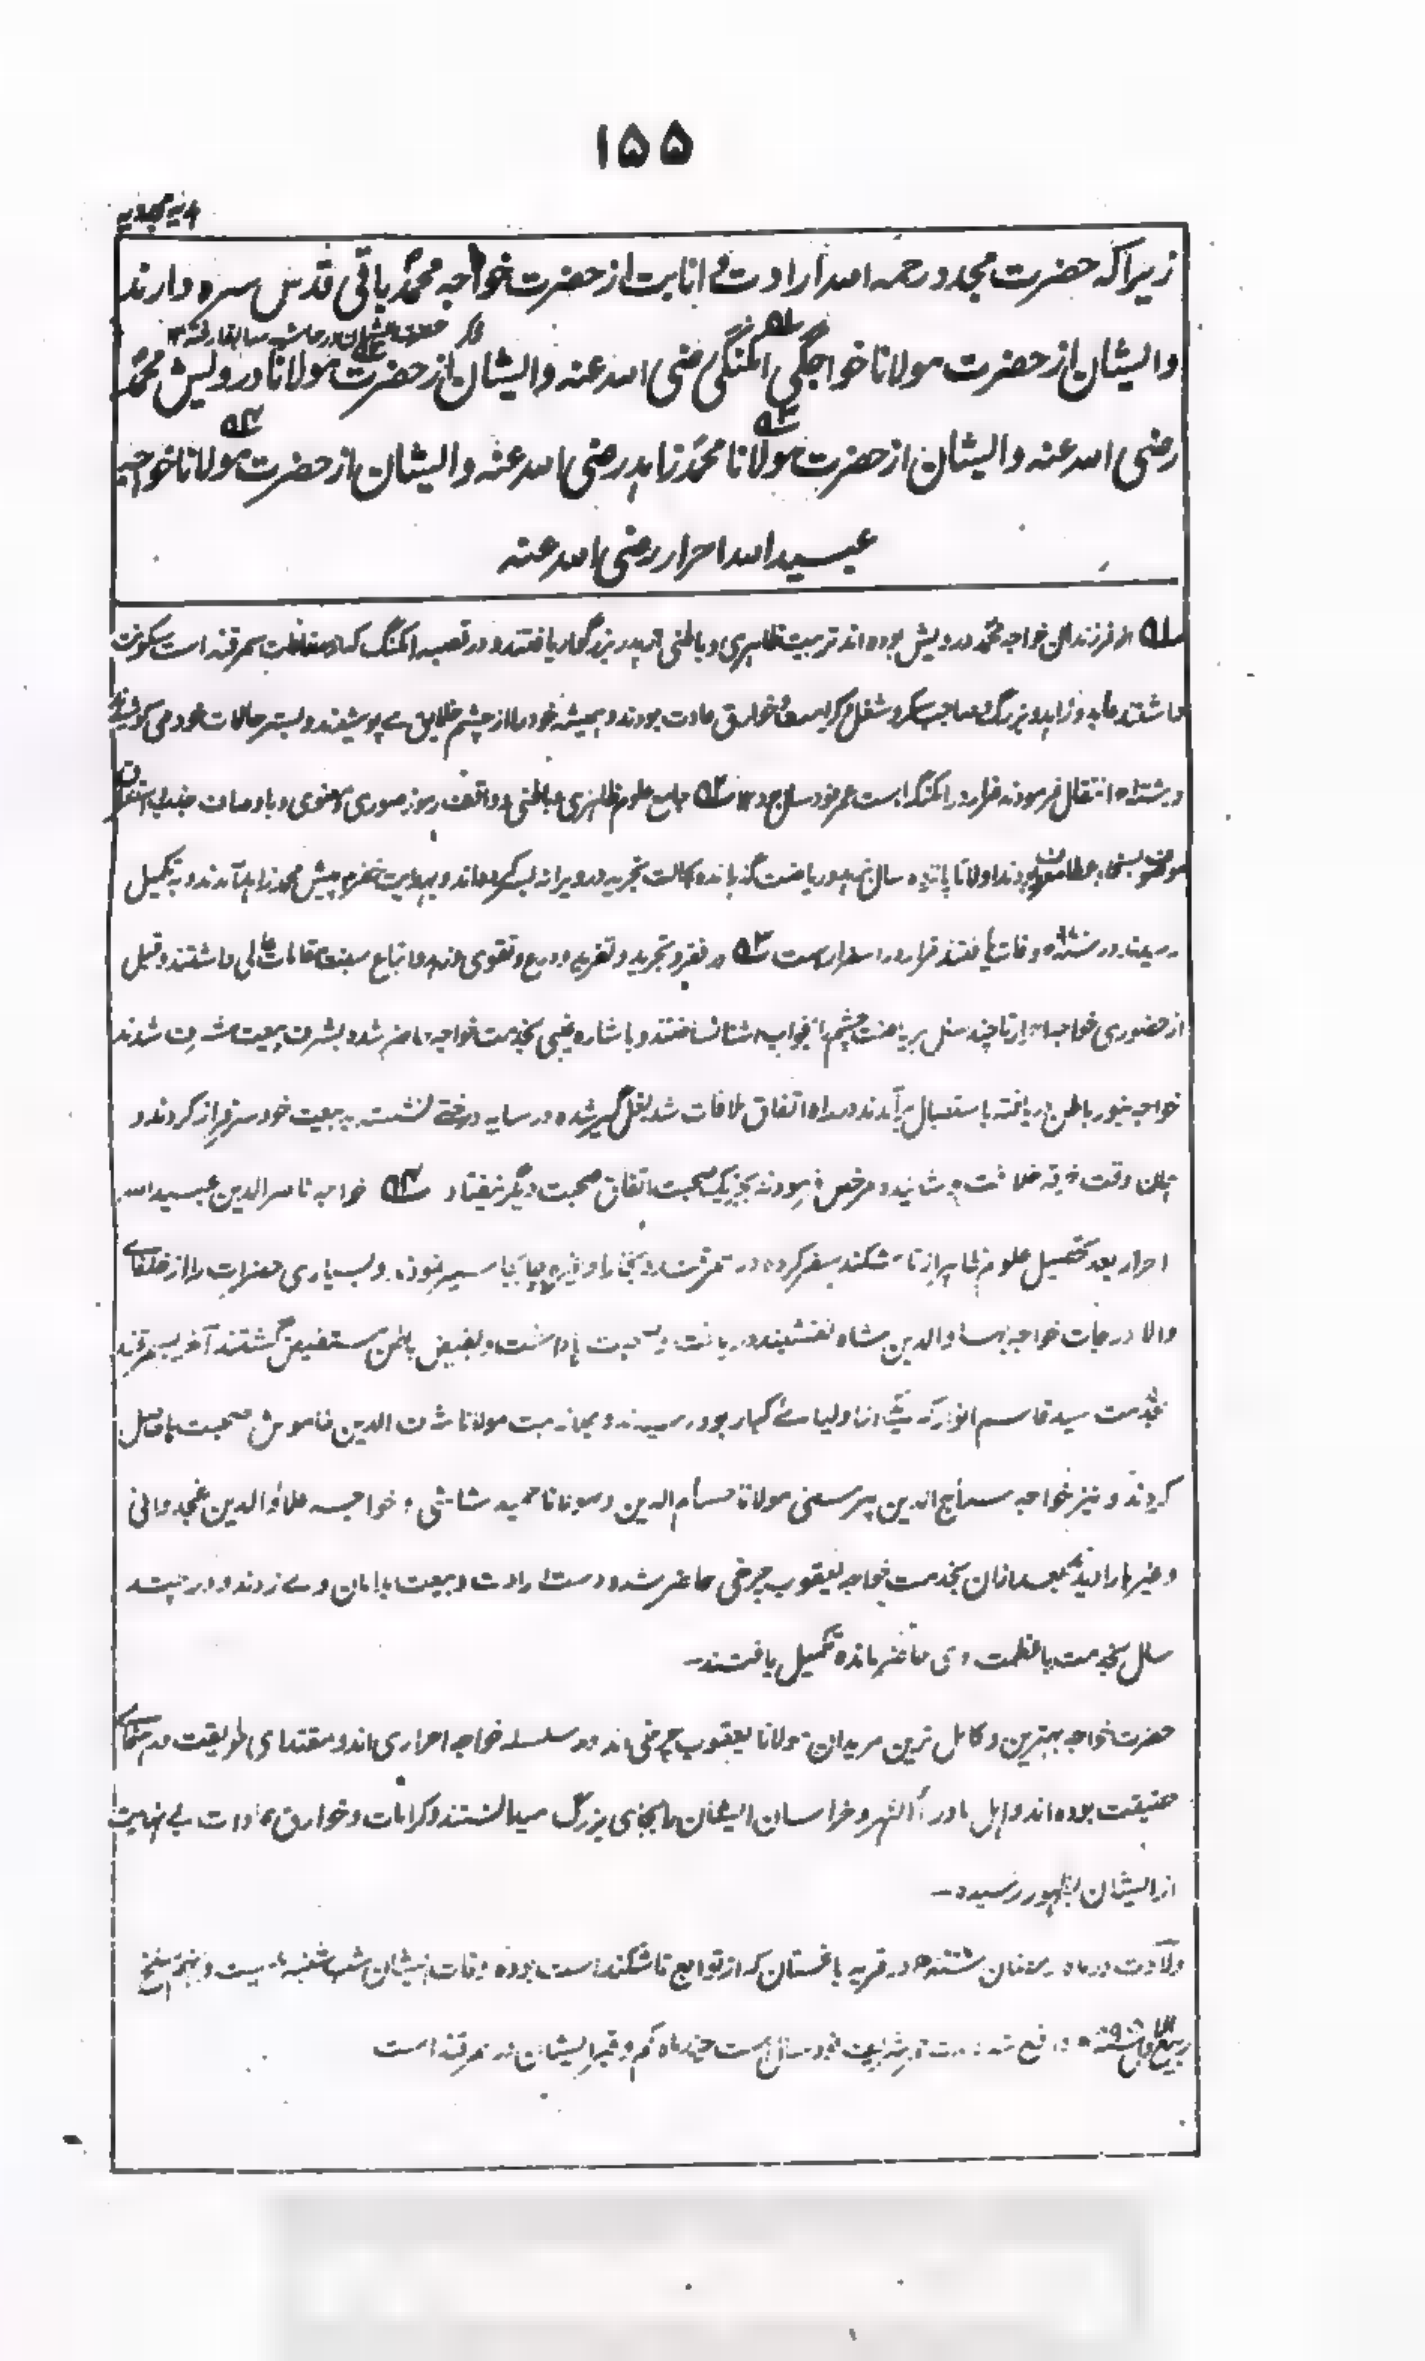 ۱۵۵
زیراکہ حضرت مجدد رحمہ اللہ ارادت و انابت از حضرت خواجہ محمد باقی قدس سرہ دارند
وایشان از حضرت مولانا خواجگی امکنگی رضی اللہ عنہ وایشان از حضرت مولانا درویش محمد
رضی اللہ عنہ وایشان از حضرت مولانا محمد زاہد رضی اللہ عنہ وایشان از حضرت مولانا خواجہ
عبیداللہ احرار رضی اللہ عنہ
از فرزندان خواجہ محمد درویش بودہ اند تربیت ظاہری و باطنی از پدر بزرگوار یافتند و در قصبہ امکنگ کہ از مضافات سمرقند است سکونت
داشتند عابد و زاہد و بزرگ و صاحب سکر و شغل و کرامت و خوارق عادت بودند و ہمیشہ خود را از چشم خلایق مے پوشیدند و بستر حالات خود می کوشیدند
انتقال فرمودند مزار در امکنگ است عمر نود سال بود جامع علوم ظاہری و باطنی و واقف رموز صوری و معنوی و باوصاف
موصوف بودند اولا تا پانزدہ سال بزہد و ریاضت گذراندہ بحالت تجرید در ویرانہ بسر کردہ اند و بہدایت خضر پیش محمد زاہد آمدند و بہ تکمیل
رسیدند در وفات یافتند مزار در اسفرار است در فقر و تجرید و تفرید و ورع و تقوی و زہد و اتباع سنت مقامات عالی داشتند و قبل
از حضوری خواجہ احرار تا چند سال بریاضت چشم از خواب آشنا نساختند و باشارہ غیبی بخدمت خواجہ حاضر شد و بشرف بیعت مشرف شدند
خواجہ بنور باطن دریافتہ باستقبال برآمدند در راہ اتفاق ملاقات شد بغل گیر شدہ در سایہ درختے نشستہ بہ بیعت خود سرفراز کردند و
ہمان وقت خرقہ خلافت پوشانیدہ مرخص فرمودند بجز یک صحبت اتفاق صحبت دیگر نیفتاد خواجہ ناصرالدین عبیداللہ
احرار بعد تحصیل علوم ظاہر از تاشکند سفر کردہ در سمرقند و بخارا و غیرہ جابجا سیر نمودند و بسیاری حضرات را از خلفاے
والا درجات خواجہ بہاوالدین شاہ نقشبند دریافت و صحبت ہا داشت و بفیض باطن مستفیض گشتند آخر بسمرقند
بخدمت سید قاسم انوار کہ یکے از اولیاے کبار بود رسیدند و بملازمت مولانا شرف الدین خاموش صحبت
کردند و نیز خواجہ سراج الدین پیرسنی مولانا حسام الدین و مولانا حمید شاشی و خواجہ علاؤ الدین غجدوانی
و غیرہا را دیدند بعد ازان بخدمت خواجہ یعقوب چرخی حاضر شد و دست ارادت و بیعت بدامان وے زدند و در چند
سال بخدمت باعظمت وی حاضر ماندہ تکمیل یافتند۔
حضرت خواجہ بہترین و کامل ترین مریدان مولانا یعقوب چرخی اند و در سلسلہ خواجہ احراری اند و مقتدای طریقت و
حقیقت بودہ اند و اہل ماوراءالنہر و خراسان ایشان را بجای بزرگ میدانستند و کرامات و خوارق عادات بے نہایت
از ایشان بظہور رسیدہ۔
ولادت در ماہ رمضان در قریہ باغستان کہ از توابع تاشکند است بودہ وفات ایشان شب شنبہ بیست و نہم سلخ
ربیع الاول واقع شد مدت عمر شریف نود سال است چند ماہ کم و قبر ایشان در سمرقند است